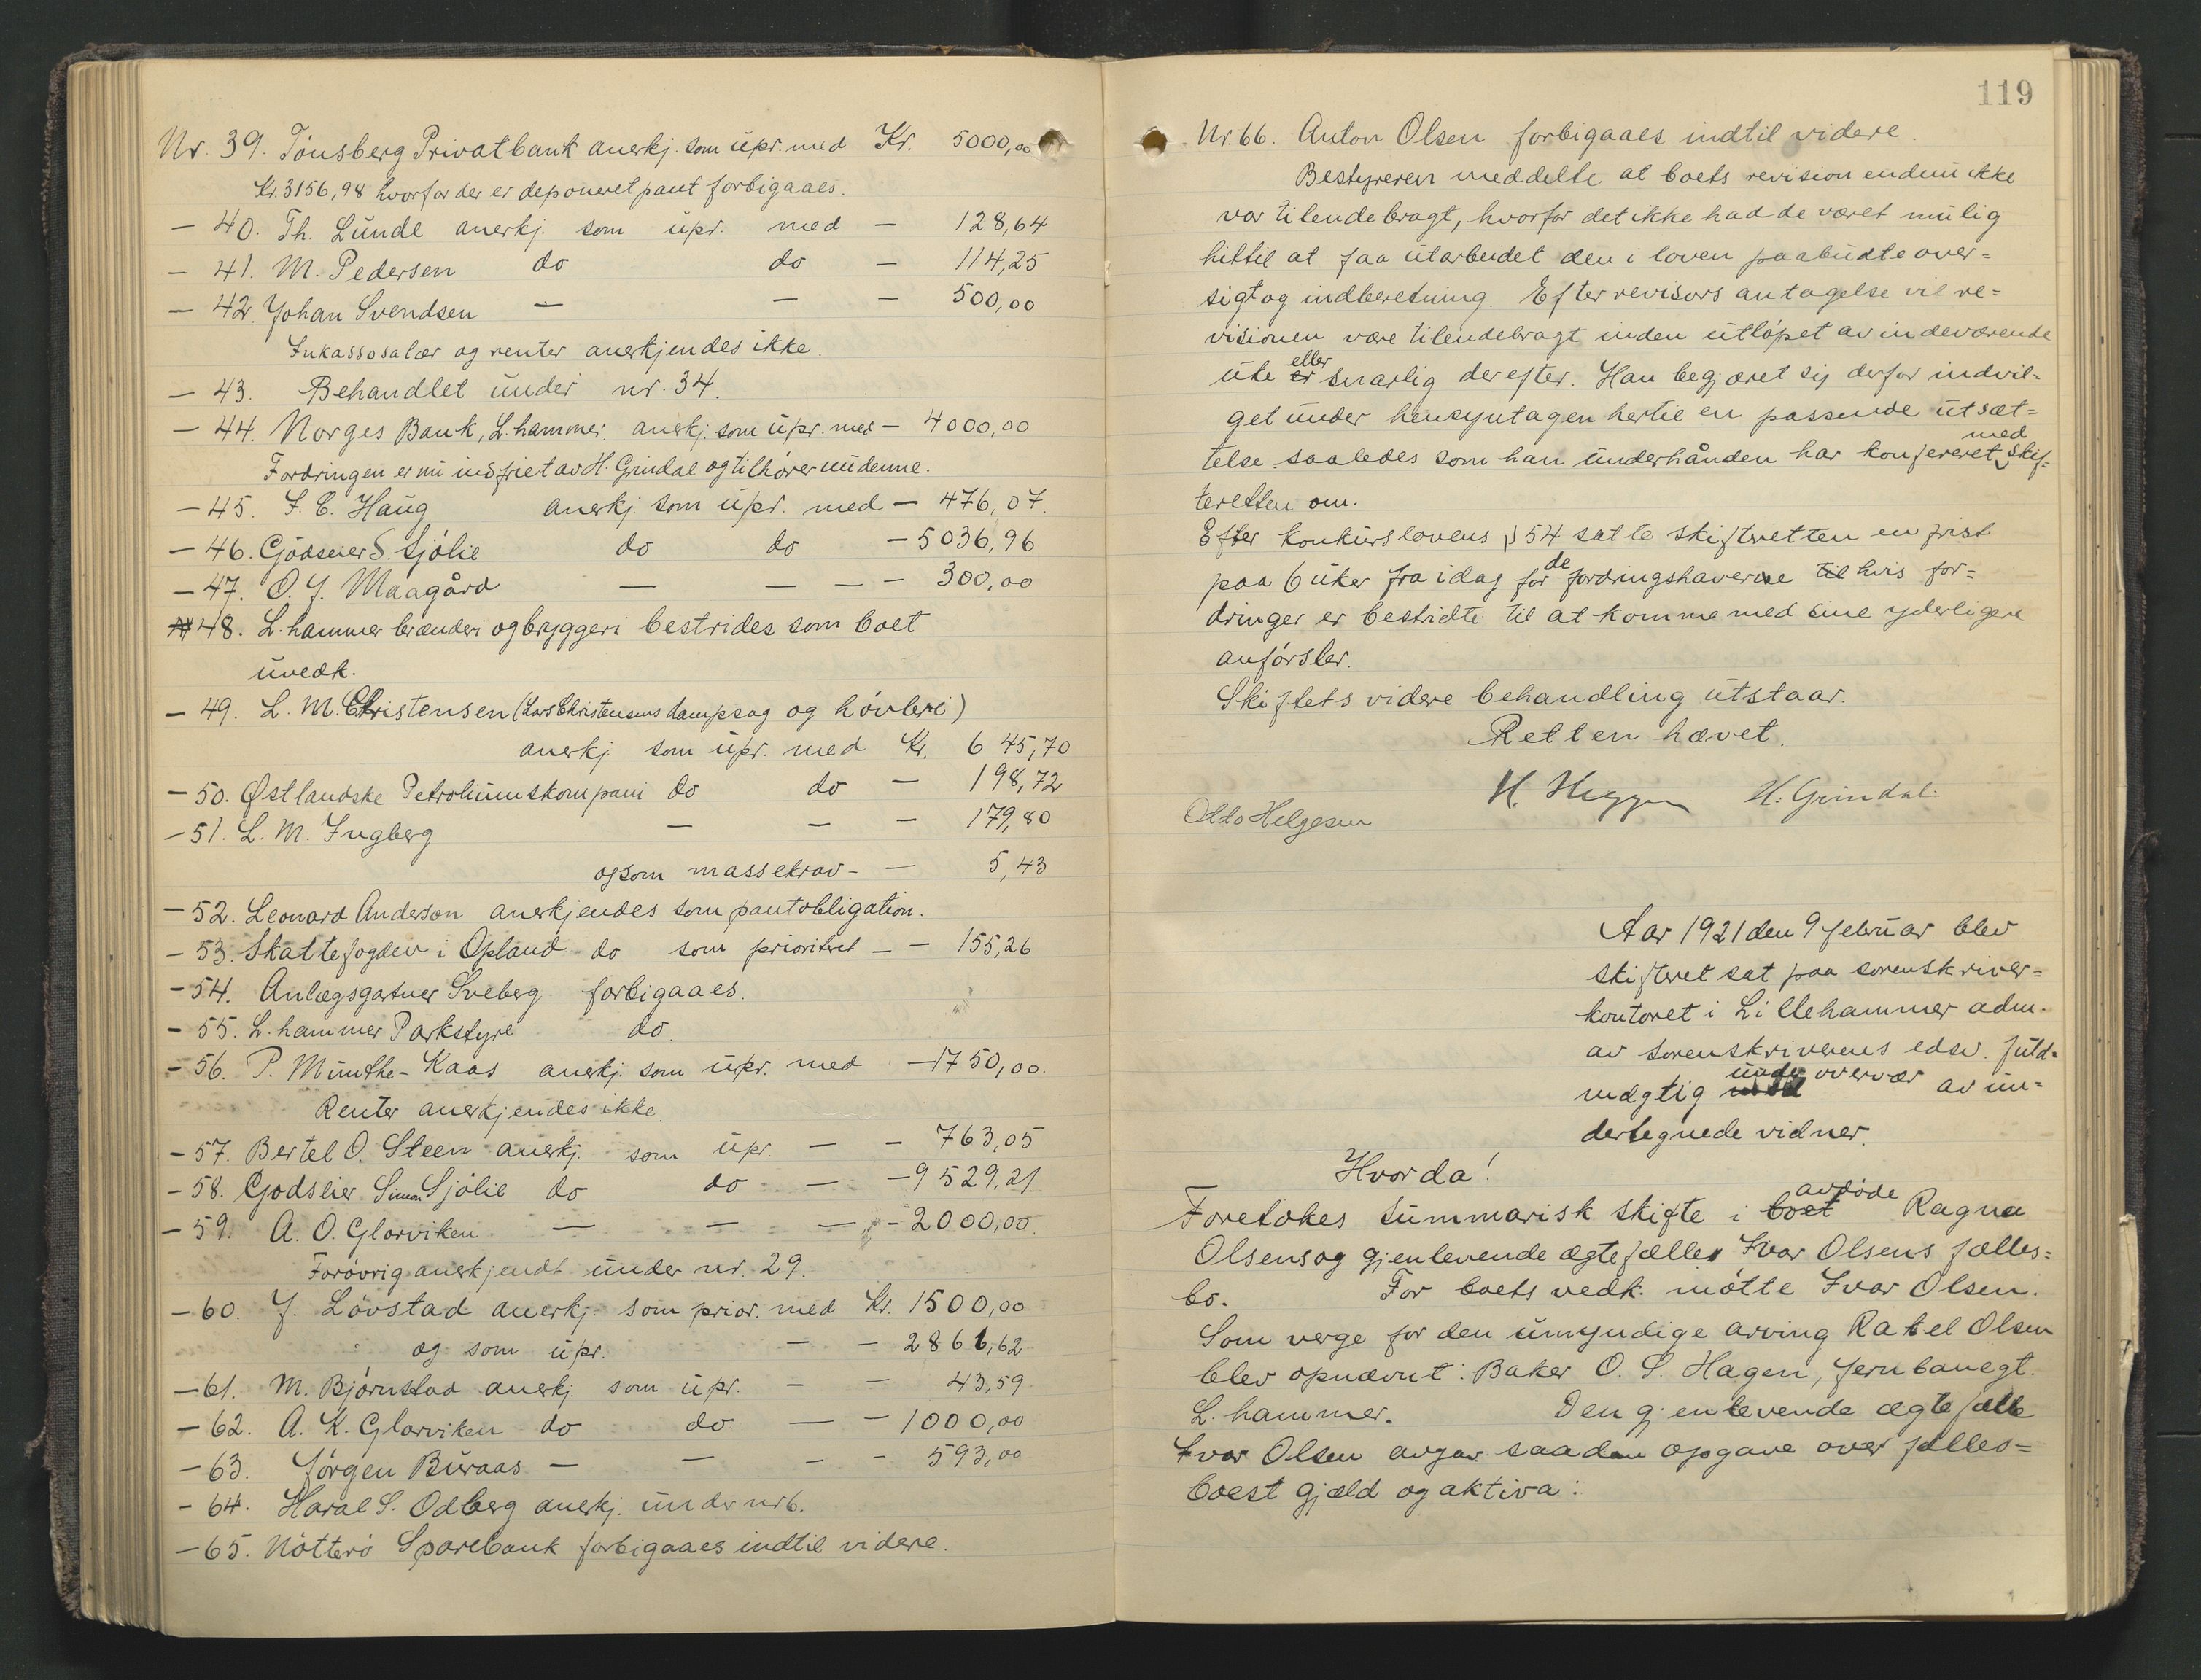 Nr. 39. Tónsberg Privatbank anerkj. som upr. med Kr. 5000,00
Kr. 3156,98 hvorfor der er deponeret pant forbigaaes.
— 40. Th. Lunde anerkj. som upr. med — 128,64
— 41. M. Pedersen do do — 114,25
— 42. Johan Svendsen — — — 500,00
Inkassosalær og renter anerkjendes ikke.
— 43. Behandlet under nr. 34.
— 44. Norges Bank, L.hammer. anerkj. som upr. med — 4000,00
Fordringen er nu indfriet av H. Grindal og tilhører nu denne.
— 45. F. C. Haug anerkj. som upr. med — 476,07.
— 46. Godseier S. Sjólie do do — 5036,96
— 47. O. J. Maagård — — — — 300,00
48. L.hammer brænderi og bryggeri bestrides som boet
uvedk.
— 49. L. M. Christensen (Lars Christensens dampsag og hóvleri)
anerkj. som upr. med Kr. 645,70
— 50. Østlandske Petroliumskompani do do — 198,72
— 51. L. M. Ingberg — — — 179,80
og som massekrav — — 5,43
— 52. Leonard Anderson anerkjendes som pantobligation.
— 53. Skattefogden i Opland do som prioritert — — 155,26
— 54. Anlægsgartner Sveberg forbigaaes.
— 55. L.hammer Parkstyre do.
— 56. P. Munthe-Kaas anerkj. som upr. med — 1750,00.
Renter anerkjendes ikke.
— 57. Bertel O. Steen anerkj. som upr. — — 763,05
— 58. Godseier Simon Sjólie do do — — 9529,21
— 59. A. O. Glorviken — — — — 2000,00.
Foróvrig anerkjendt under nr. 29.
— 60. J. Lóvstad anerkj. som prior. med Kr. 1500,00
og som upr. — — 2866,62
— 61. M. Bjórnstad anerkj. som upr. — — 43,59
— 62. A. K. Glorviken do do — — 1000,00
— 63. Jórgen Buraas — — — — 593,00
— 64. Haral S. Odberg anerkj. under nr 6.
— 65. Nótteró Sparebank forbigaaes indtil videre.
119
Nr. 66. Anton Olsen forbigaaes indtil videre.
Bestyreren meddelte at boets revision endnu ikke
var tilendebragt, hvorfor det ikke hadde været mulig
hittil at faa utarbeidet den i loven paabudte over=
sigt og indberetning. Efter revisors antagelse vil re=
visionen være tilendebragt inden utlópet av indeværende
uke eller snarlig derefter. Han begjæret sig derfor indvil=
get under hensyntagen hertil en passende utsæt=
telse saaledes som han underhånden har konfereret med skif=
teretten om.
Efter konkurslovens § 54 satte skifteretten en frist
paa 6 uker fra idag for de fordringshaverne til hvis for=
dringer er bestridte til at komme med sine yderligere
anfórsler.
Skiftets videre behandling utstaar.
Retten hævet.
Otto Helgesen H. Heggen H. Grindal.
Aar 1921 den 9 februar blev
skifteret sat paa sorenskriver=
kontoret i Lillehammer adm.
av sorenskriverens edsv. fuld=
mægtig under overvær av un=
dertegnede vidner.
Hvorda!
Foretokes summarisk skifte i boet avdóde Ragna
Olsens og gjenlevende ægtefælle Ivar Olsens fælles=
bo. For boets vedk. mótte Ivar Olsen.
Som verge for den umyndige arving Rakel Olsen
blev opnævnt: Baker O. S. Hagen, Jernbanegt.
L.hammer. Den gjenlevende ægtefælle
Ivar Olsen avgav saadan opgave over fælles=
boest gjæld og aktiva: